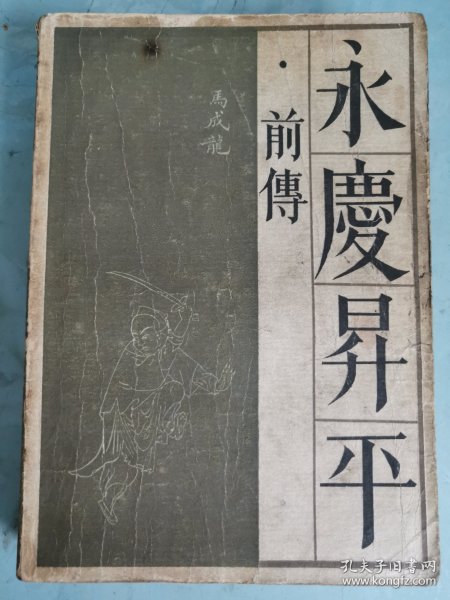 永慶昇平
·前傳
馬成龍
孔夫子旧书网
www.kongfz.com